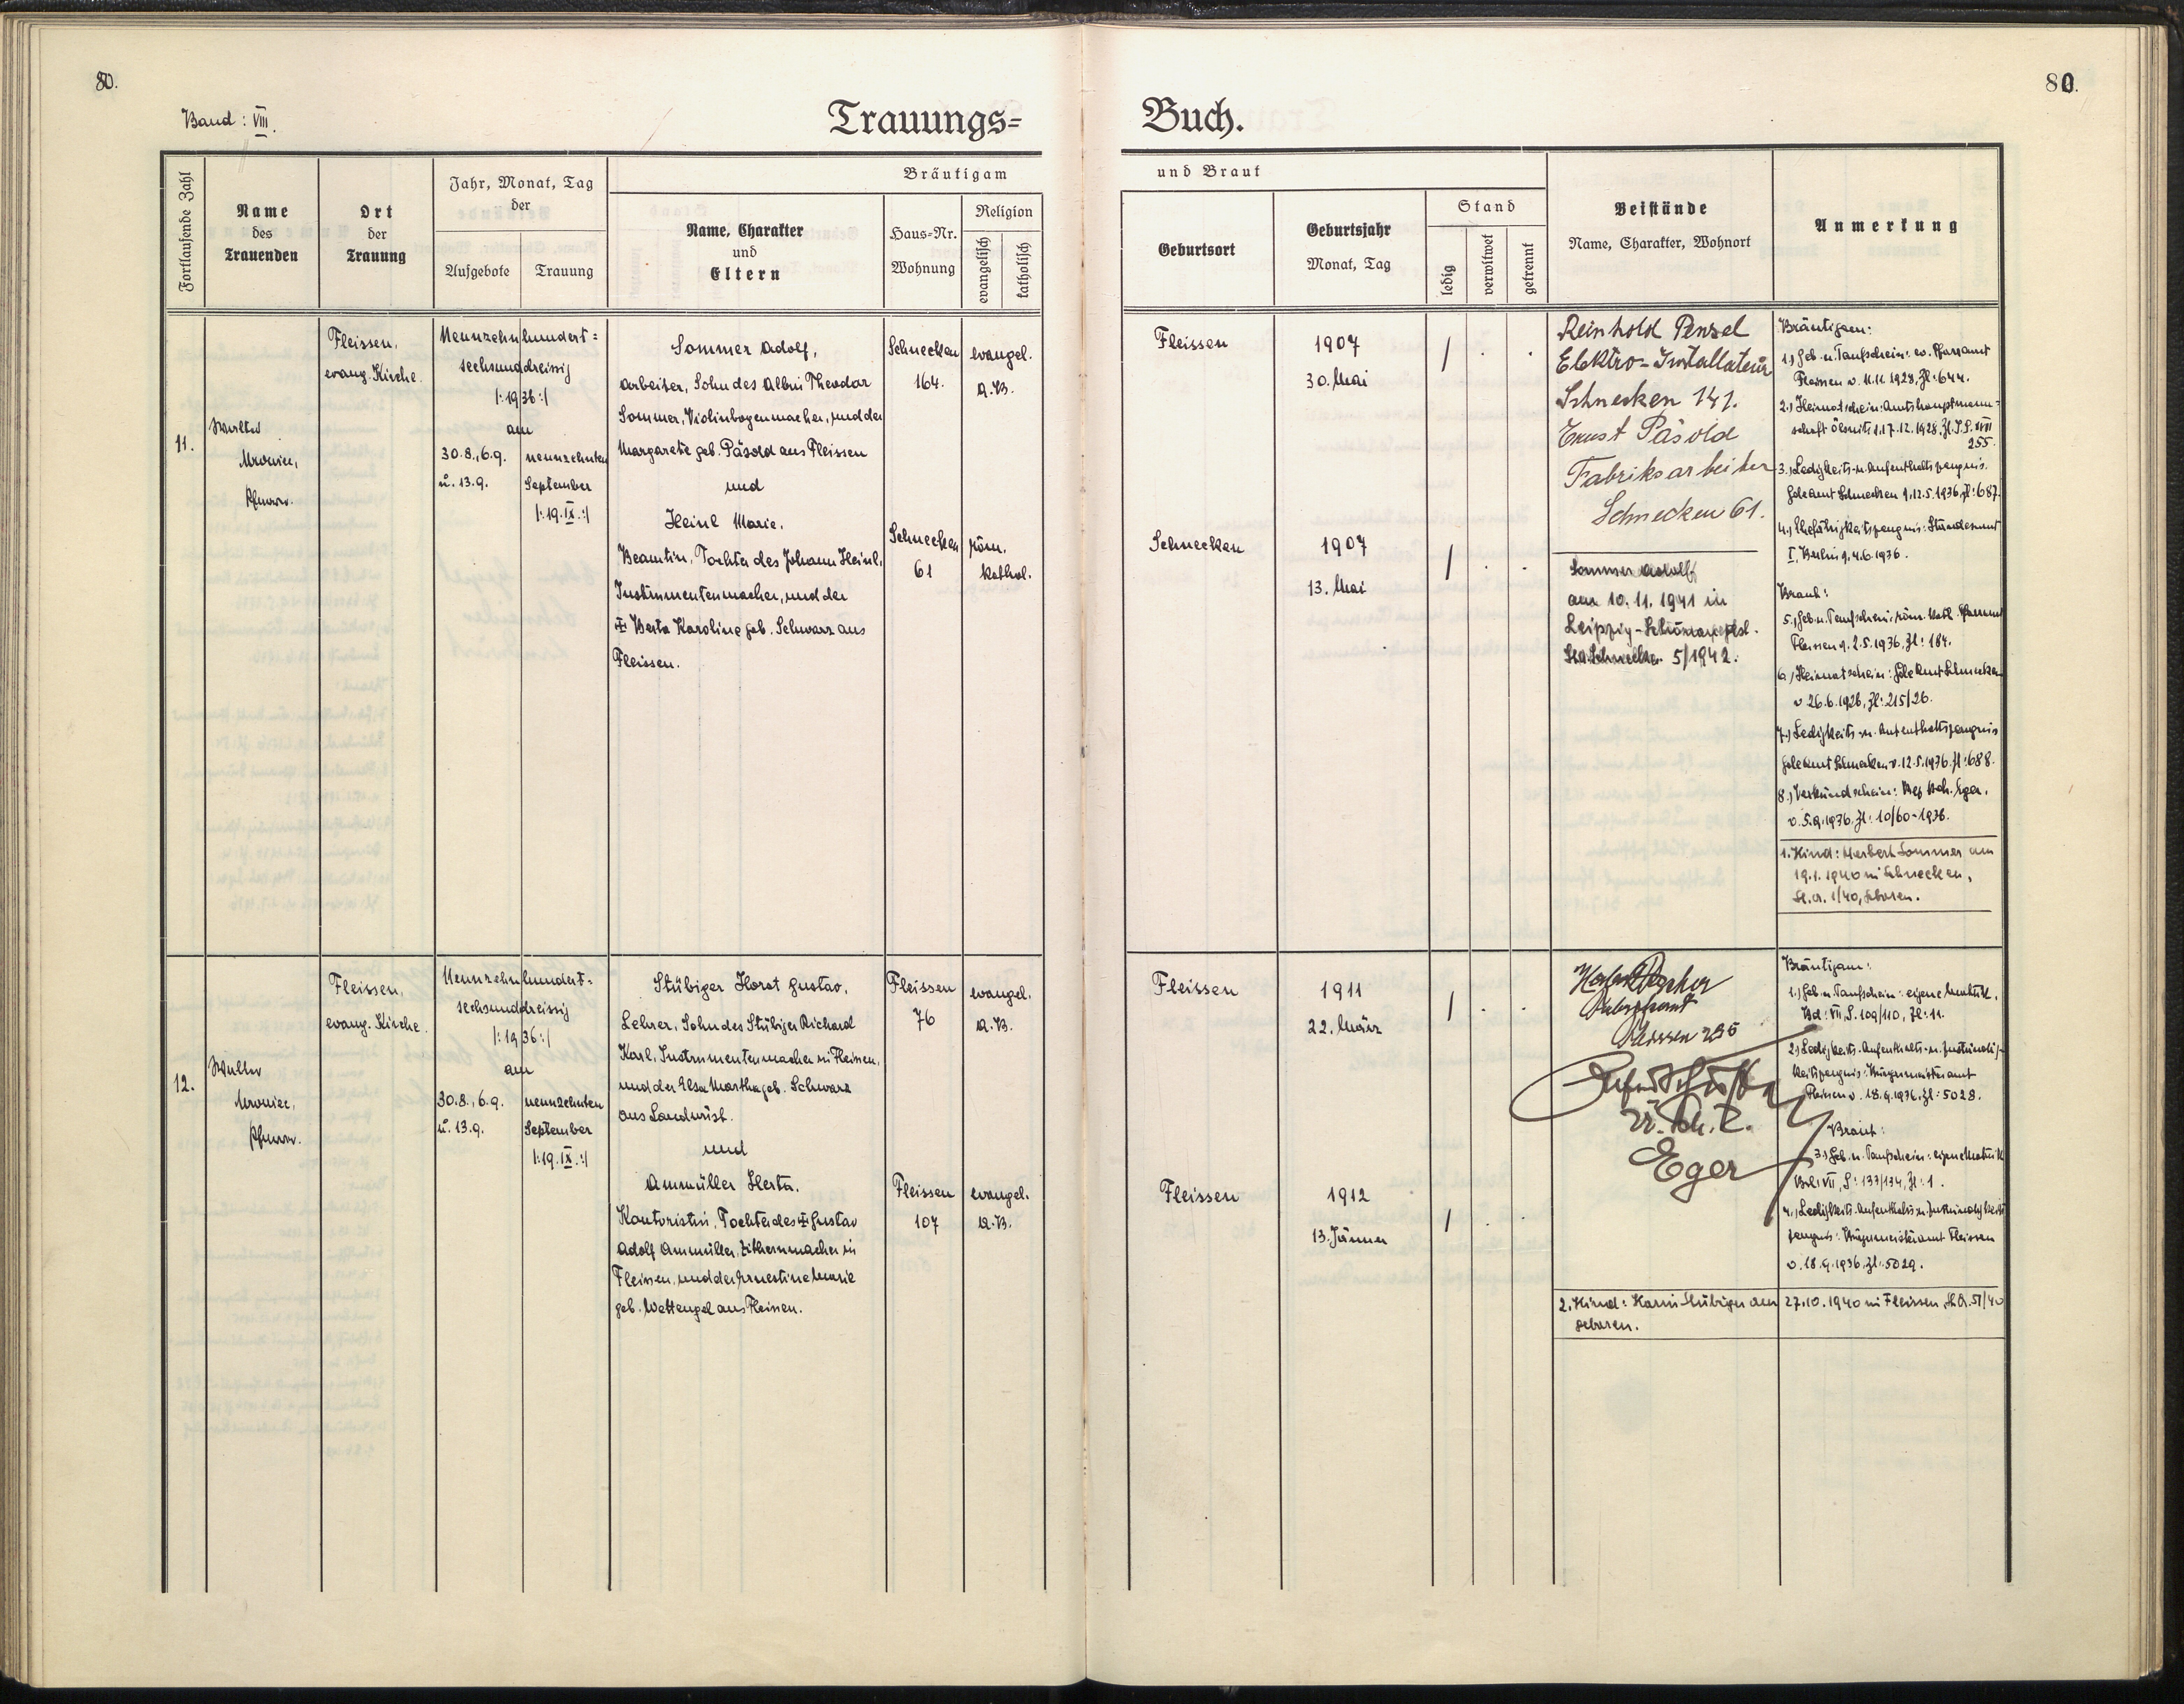 80.
80.
Band: VIII.
Trauungs=
Buch.
Fortlaufende Zahl
Name
des
Trauenden
Ort
der
Trauung
Jahr, Monat, Tag
der
Aufgebote
Trauung
Bräutigam
Name, Charakter
und
Eltern
Haus=Nr.
Wohnung
Religion
evangelisch
katholisch
und Braut
Geburtsort
Geburtsjahr
Monat, Tag
Stand
ledig
verwitwet
getrennt
Beistände
Name, Charakter, Wohnort
Anmerkung
11.
Walter
Pfarrer.
Fleissen,
evang. Kirche.
Neunzehnhundert=
sechsunddreissig
/:1936:/
am
30.8., 6.9.
u. 13.9.
neunzehnten
September
/:19.IX.:/
Sommer Adolf,
Arbeiter, Sohn des Albin Theodor
Sommer, Violinbogenmacher, und der
Margarete geb. Päsold aus Fleissen
und
Heinl Marie,
Beamtin, Tochter des Johann Heinl,
Instrumentenmacher, und der
Berta Karoline geb. Schwarz aus
Fleissen.
Schnecken
164.
evangel.
A.B.
Schnecken
61
röm.
kathol.
Fleissen
1907
30. Mai
/ . .
Schnecken
1907
13. Mai
/ . .
Reinhold Penzel
Elektro-Installateur
Schnecken 141.
Ernst Päsold
Fabriksarbeiter
Schnecken 61.
Sommer Adolf
am 10.11.1941 in
Leipzig-
5/1942.
Bräutigam:
1.) Geb. u. Taufschein: ev. Pfarramt
Fleissen v. 11.11.1927, Zl: 644.
2.) Heimatschein: Amtshauptmann=
schaft Ölsnitz v. 17.12.1928, Zl.
255.
3.) Ledigkeits- u. Aufenthaltszeugnis.
Gde Amt Schnecken v. 12.5.1936, Zl: 687.
4.) Ehefähigkeitszeugnis: Standesamt
I, Berlin v. 4.6.1936.
Braut:
5.) Geb. u. Taufschein: röm. kath. Pfarramt
Fleissen v. 2.5.1936, Zl: 184.
6.) Heimatschein: Gde Amt Schnecken
v. 26.6.1926, Zl: 215/26.
7.) Ledigkeits- u. Aufenthaltszeugnis
Gde Amt Schnecken v. 12.5.1936. Zl: 688.
8.) Verkündschein: Bez. Beh. Eger,
v. 5.9.1936. Zl: 10/60-1936.
1. Kind: Herbert Sommer am
19.1.1940 in Schnecken,
1/40, geboren.
12.
Walter
Pfarrer.
Fleissen,
evang. Kirche.
Neunzehnhundert=
sechsunddreissig
/:1936:/
am
30.8., 6.9.
u. 13.9.
neunzehnten
September
/:19.IX.:/
Stübiger Horst Gustav,
Lehrer, Sohn des Stübiger Richard
Karl, Instrumentenmacher in Fleissen,
und der Elsa Martha geb. Schwarz
aus Landwüst.
und
Ammüller Herta.
Kontoristin, Tochter des Gustav
Adolf Ammüller, Zithernmacher in
Fleissen, und der Ernestine Marie
geb. Wettengel aus Fleissen.
Fleissen
76
evangel.
A.B.
Fleissen
107
evangel.
A.B.
Fleissen
1911
22. März
/ . .
Fleissen
1912
13. Jänner
/ . .
Eger
Bräutigam:
1.) Geb. u. Taufschein: eigene Matrik,
Bd: VII, S. 109/110, Zl: 11.
2.) Ledigkeits- Aufenthalts- u. Zuständig=
keitszeugnis: Bürgermeisteramt
Fleissen v. 18.9.1936, Zl: 5028.
Braut:
3.) Geb. u. Taufschein: eigene Matrik
Bd: VII, S: 133/134, Zl: 1.
4.) Ledigkeits- Aufenthalts- u. Zuständigkeits
zeugnis: Bürgermeisteramt Fleissen
v. 18.9.1936, Zl: 5029.
2. Kind: Karin Stübiger am 27.10.1940 in Fleissen, 51/40
geboren.